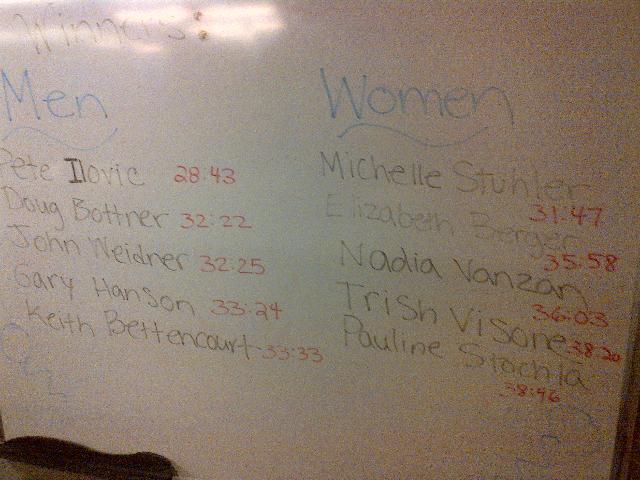 Winners:
Men
Pete Ilovic 28:43
Doug Bottner 32:22
John Weidner 32:25
Gary Hanson 33:24
Keith Bettencourt 33:33
Women
Michelle Stuhler
31:47
Elizabeth Berger
35:58
Nadia Vanzan
36:03
Trish Visone 38:20
Pauline Stachla
38:46